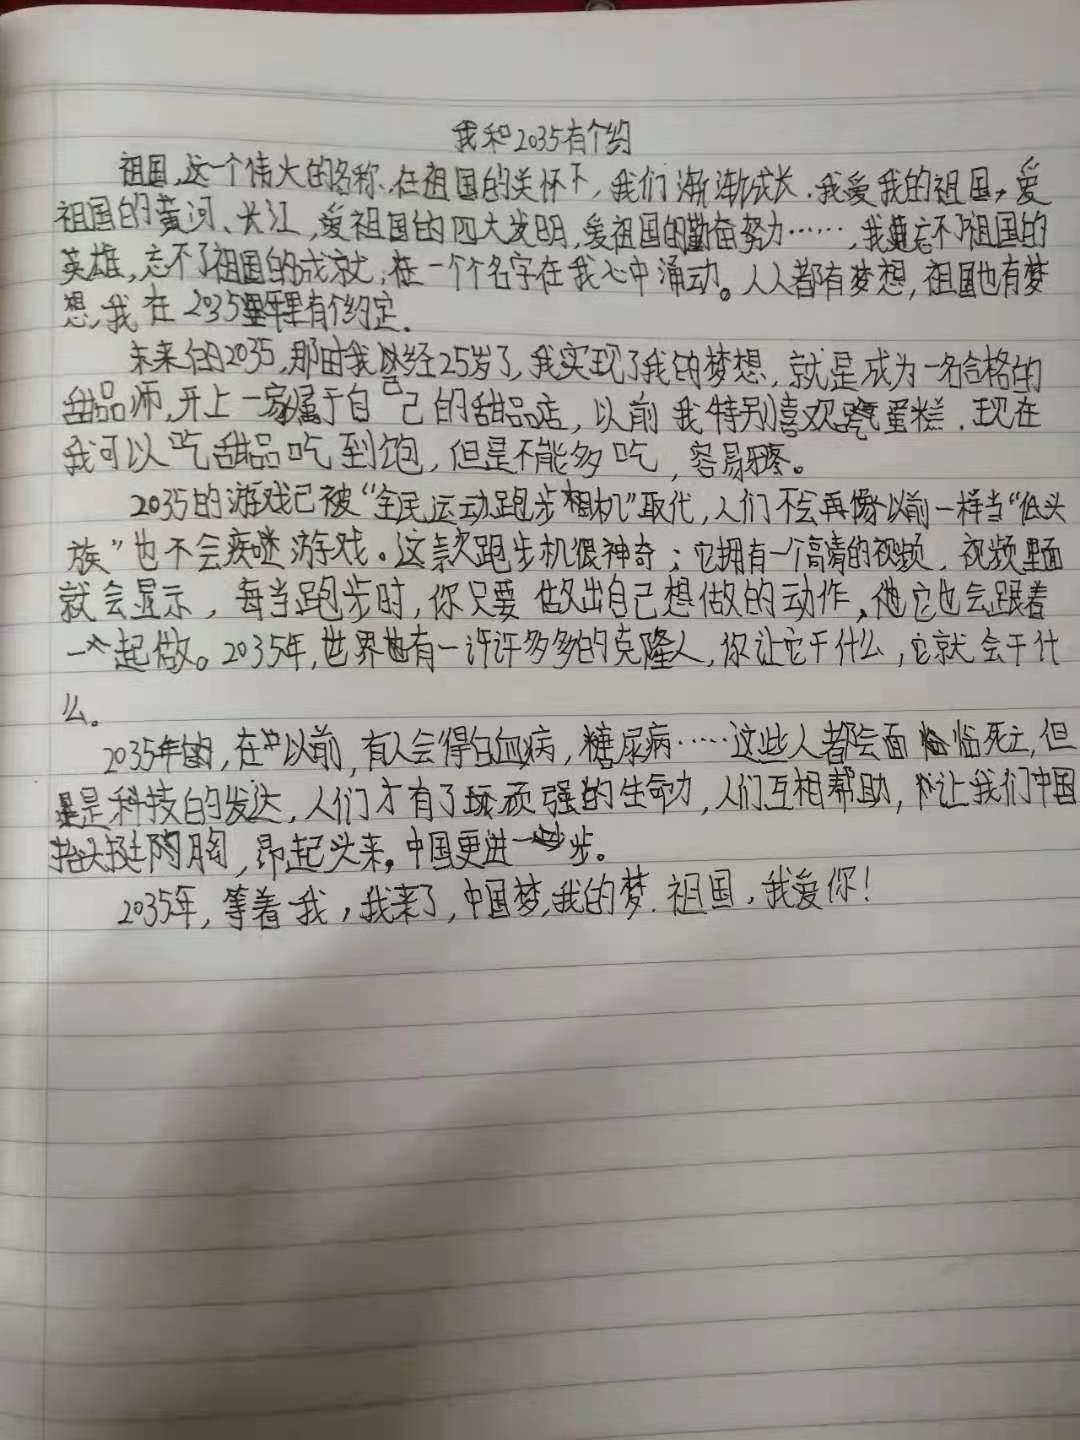 我和2035有个约
祖国,这个伟大的名称,在祖国的关怀下,我们渐渐成长.我爱我的祖国,爱
祖国的黄河、长江,爱祖国的四大发明,爱祖国的勤奋努力……,我忘不了祖国的
英雄,忘不了祖国的成就,在一个个名字在我心中涌动。人人都有梦想,祖国也有梦
想,我在2035年里有个约定.
未来的2035,那时我以经25岁了,我实现了我的梦想,就是成为一名合格的
甜品师,开上一家属于自己的甜品店,以前我特别喜欢蛋糕.现在
我可以吃甜品吃到饱,但是不能多吃,容易牙疼。
2035的游戏已被“全民运动跑步机”取代,人们不会再像以前一样当“低头
族”也不会痴迷游戏。这款跑步机很神奇;它拥有一个高清的视频,视频里面
就会显示,每当跑步时,你只要做出自己想做的动作,它也会跟着
一起做。2035年,世界也有一许许多多的克隆人,你让它干什么,它就会干什
么。
2035年的,在以前,有人会得白血病,糖尿病……这些人都会面临死亡,但
是科技的发达,人们才有了顽强的生命力,人们互相帮助,让我们中国
抬头挺胸,昂起头来,中国更进一步。
2035年,等着我,我来了,中国梦,我的梦.祖国,我爱你!